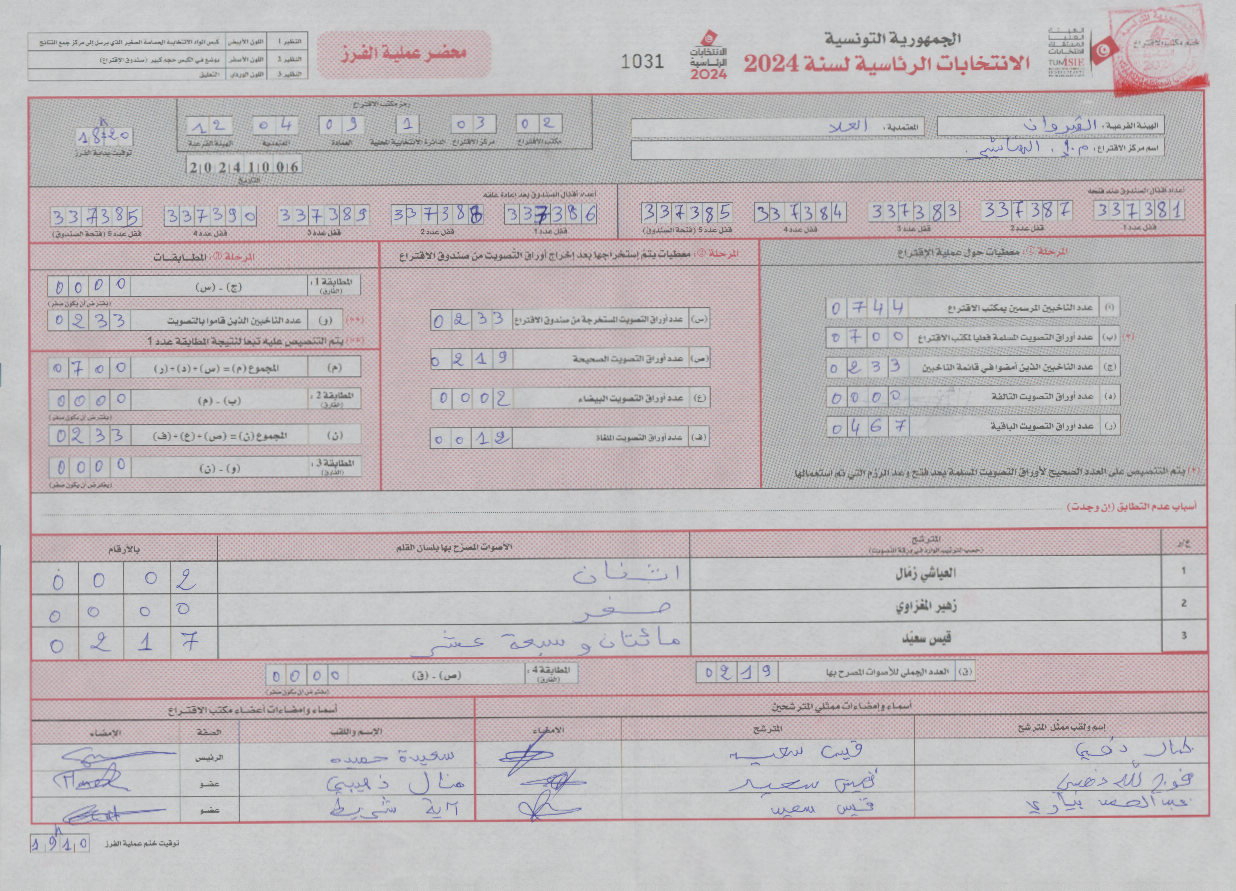 الجمهورية التونسية
الانتخابات الرئاسية لسنة 2024
الهيئة العليا المستقلة للانتخابات
ختم مكتب الاقتراع
الانتخابات الرئاسية 2024
1031
محضر عملية الفرز
النظير 1 اللون الأبيض كيس المواد الانتخابية الحساسة الصغير الذي يرسل إلى مركز جمع النتائج
النظير 2 اللون الأصفر يوضع في الكيس حجم كبير (صندوق الاقتراع)
النظير 3 اللون الوردي التعليق
الهيئة الفرعية: القيروان المعتمدية: العلا
اسم مركز الاقتراع: م.إ. الهاشمي
رمز مكتب الاقتراع
02 03 1 09 04 12
مكتب الاقتراع مركز الاقتراع الدائرة الانتخابية المحلية العمادة المعتمدية الهيئة الفرعية
20241006
التاريخ
18 h 20
توقيت بداية الفرز
أعداد أقفال الصندوق عند فتحه
337381 337387 337383 337384 337385
قفل عدد 1 قفل عدد 2 قفل عدد 3 قفل عدد 4 قفل عدد 5 (فتحة الصندوق)
أعداد أقفال الصندوق بعد إعادة غلقه
337386 337388 337389 337390 337385
قفل عدد 1 قفل عدد 2 قفل عدد 3 قفل عدد 4 قفل عدد 5 (فتحة الصندوق)
المرحلة ①: معطيات حول عملية الإقتراع
(أ) عدد الناخبين المرسمين بمكتب الاقتراع 0744
(*) (ب) عدد أوراق التصويت المسلمة فعليا لمكتب الاقتراع 0700
(ج) عدد الناخبين الذين أمضوا في قائمة الناخبين 0233
(د) عدد أوراق التصويت التالفة 0000
(ر) عدد أوراق التصويت الباقية 0467
(*) يتم التنصيص على العدد الصحيح لأوراق التصويت المسلمة بعد فتح وعد الرزم التي تم استعمالها
المرحلة ②: معطيات يتم إستخراجها بعد إخراج أوراق التصويت من صندوق الاقتراع
(س) عدد أوراق التصويت المستخرجة من صندوق الاقتراع 0233
(ص) عدد أوراق التصويت الصحيحة 0219
(ع) عدد أوراق التصويت البيضاء 0002
(ف) عدد أوراق التصويت الملغاة 0012
المرحلة ③: المطابقات
المطابقة 1: (الفارق) (ج) - (س) 0000
(يفترض أن يكون صفر)
(**) (و) عدد الناخبين الذين قاموا بالتصويت 0233
(**) يتم التنصيص عليه تبعا لنتيجة المطابقة عدد 1
(م) المجموع (م) = (س)+(د)+(ر) 0700
المطابقة 2: (الفارق) (ب) - (م) 0000
(يفترض أن يكون صفر)
(ن) المجموع (ن) = (ص)+(ع)+(ف) 0233
المطابقة 3: (الفارق) (و) - (ن) 0000
(يفترض أن يكون صفر)
أسباب عدم التطابق (إن وجدت)
ع/ر المترشح (حسب الترتيب الوارد في ورقة التصويت) الأصوات المصرّح بها بلسان القلم بالأرقام
1 العياشي زمّال اثنان 0002
2 زهير المغزاوي صفر 0000
3 قيس سعيّد مائتان و سبعة عشر 0217
(ق) العدد الجملي للأصوات المصرح بها 0219
المطابقة 4: (الفارق) (ص) - (ق) 0000
(يفترض أن يكون صفر)
أسماء وإمضاءات ممثلي المترشحين
اسم ولقب ممثل المترشح المترشح الامضاء
قيس سعيد
قيس سعيد
قيس سعيد
أسماء وإمضاءات أعضاء مكتب الاقتراع
الإسم واللقب الصفة الإمضاء
سعيدة حميده الرئيس
منال ذهيبي عضو
آية شريط عضو
19 h 10
توقيت ختم عملية الفرز